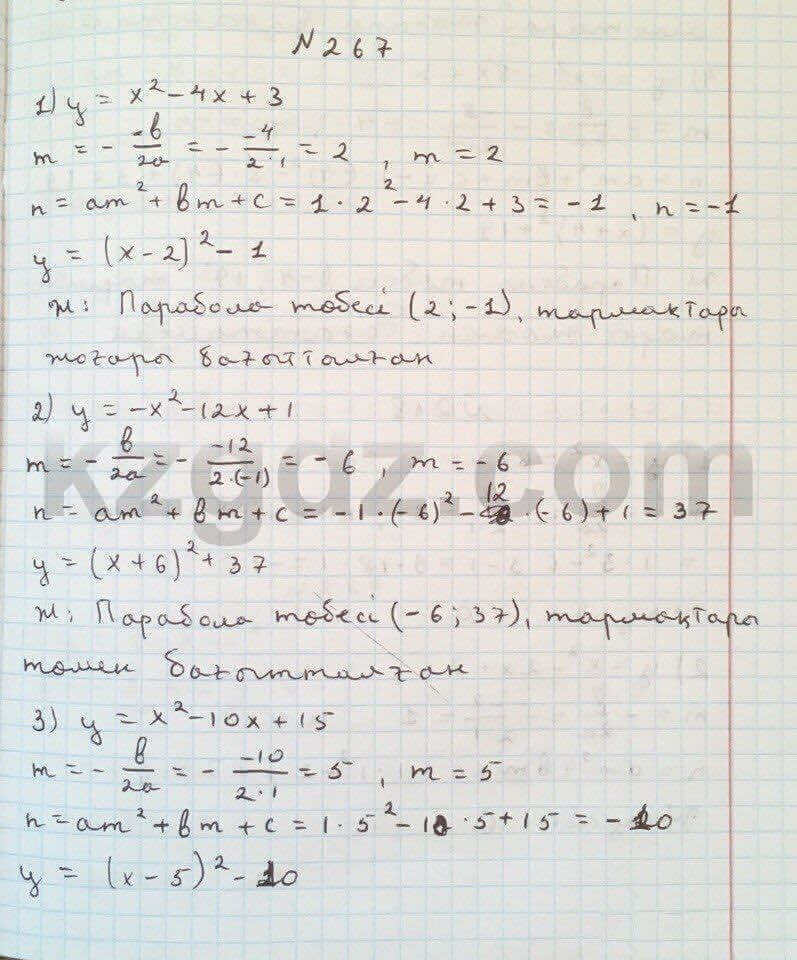 N 267
1) y = x² - 4x + 3
m = - -b/2a = - -4/2·1 = 2, m = 2
n = am² + bm + c = 1 · 2² - 4 · 2 + 3 = -1, n = -1
y = (x - 2)² - 1
ж: Парабола төбесі (2; -1), тармақтары
жоғары бағытталған
2) y = -x² - 12x + 1
m = - b/2a = - -12/2·(-1) = -6, m = -6
n = am² + bm + c = -1 · (-6)² - 12 · (-6) + 1 = 37
y = (x + 6)² + 37
ж: Парабола төбесі (-6; 37), тармақтары
төмен бағытталған
3) y = x² - 10x + 15
m = - b/2a = - -10/2·1 = 5, m = 5
n = am² + bm + c = 1 · 5² - 10 · 5 + 15 = -10
y = (x - 5)² - 10
kzgdz.com